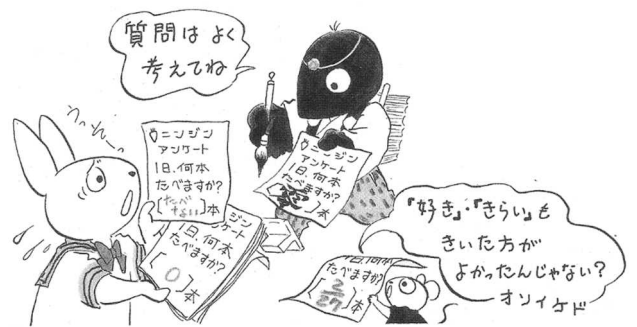 質問は よく
考えてね
うっれー
ニンジン
アンケート
1日、何本
たべますか?
[たべない]本
ンジン
ケート
日、何本
たべますか?
[0]本
ニンジン
アンケート
1日、何本
たべますか?
本
1日、何本
たべますか?
[2/27]本
『好き』・『きらい』も
きいた方が
よかったんじゃない?
オソイケド